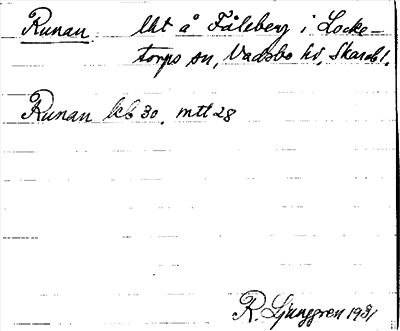 Runan. lht å Fåleberg i Locke-
torps sn, Vadsbo hd, Skarab l.
Runan kb 30. mtt 28
R. Ljunggren 1931